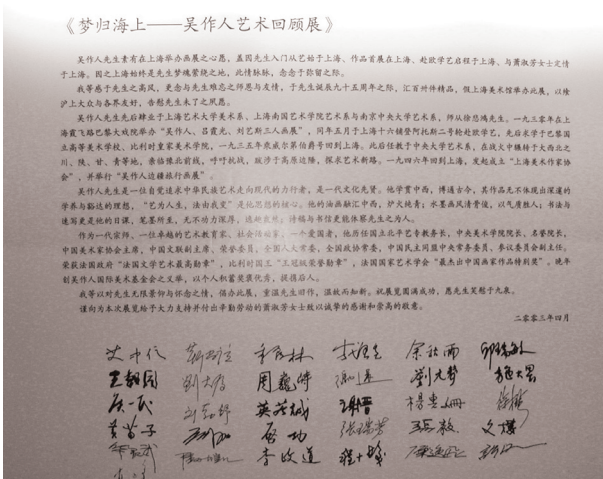 《梦归海上——吴作人艺术回顾展》
吴作人先生素有在上海举办画展之心愿，盖因先生入门从艺始于上海、作品首展在上海、赴欧学艺启程于上海、与萧淑芳女士定情
于上海。因之上海始终是先生梦魂萦绕之地，此情脉脉，念念于弥留之际。
我等感于先生之高风，更念与先生难忘之师恩与友情，于先生诞辰九十五周年之际，汇百卅件精品，假上海美术馆举办此展，以飨
沪上大众与各界友好，告慰先生未了之夙愿。
吴作人先生先后肄业于上海艺术大学美术系，上海南国艺术学院艺术系与南京中央大学艺术系，师从徐悲鸿先生。一九三〇年在上
海霞飞路巴黎大戏院举办“吴作人、吕霞光、刘艺斯三人画展”，同年五月于上海十六铺登阿扥斯二号轮赴欧学艺，先后求学于巴黎国
立高等美术学校、比利时皇家美术学院，一九三五年乘威尔第伯爵号回到上海。此后任教于中央大学艺术系，在战火中辗转于大西北之
川、陕、甘、青等地，亲临豫北前线，呼吁抗战，跋涉于高原边陲，探求艺术新路。一九四六年回到上海，发起成立“上海美术作家协
会”，并举行“吴作人边疆旅行画展”。
吴作人先生是一位自觉追求中华民族艺术走向现代的力行者，是一代文化先贤。他学贯中西，博通古今，其作品无不体现出深邃的
学养与豁达的理想，“艺为人生，法由我变”是他思想的核心。他的油画融汇中西，炉火纯青；水墨画风清骨俊，以气质胜人；书法与
速写更是他的日课，笔墨所至，无不功力深厚，诗稿与书信更能体察先生之为人。
作为一代宗师，一位卓越的艺术教育家、社会活动家，一个爱国者，他历任国立北平艺专教务长，中央美术学院院长、名誉院长，
中国美术家协会主席，中国文联副主席、荣誉委员，全国人大常委，全国政协常委，中国民主同盟中央常务委员、参议委员会副主任。
荣获法国政府“法国文学艺术最高勋章”，比利时国王“王冠级荣誉勋章”，法国国家艺术学会“最杰出中国画家作品特别奖”。晚年
创吴作人国际美术基金会之义举，以个人积蓄奖褒优秀，提携后人。
我等以对先生无限景仰与怀念之情，倡办此展，重温先生旧作，温故而知新。祝展览圆满成功，愿先生笑慰于九泉。
谨向为本次展览给于大力支持并付出辛勤劳动的萧淑芳女士致以诚挚的感谢和崇高的敬意。
二零零三年四月
艾中信 靳尚谊 余秋雨 邵大箴
刘大为 周巍峙 谢晋
侯一民 启功 李政道 程十发